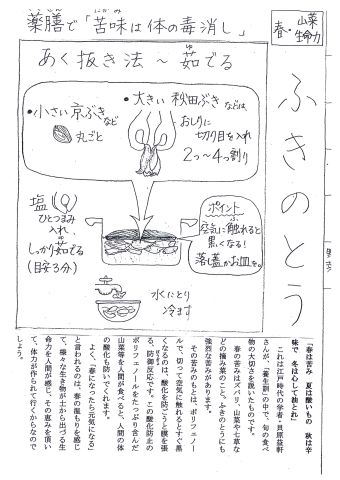 薬膳で「苦味は体の毒消し」
春・山菜
生命力
ふきのとう
あく抜き法～茹でる
・小さい京ぶき
など
丸ごと
・大きい秋田ぶきなどは、
おしりに
切り目を入れ
2つ～4つ割り
塩
ひとつまみ
入れ、
しっかり茹でる
(目安3分)
ポイント
空気に触れると
黒くなる!
落し蓋かお皿を。
水にとり
冷ます
「春は苦み、夏は酸いもの 秋は辛
味で 冬は心して油とれ」
これは江戸時代の学者・貝原益軒
さんが、「養生訓」の中で、旬の食べ
物の大切さを説いたものです。
春の苦みはズバリ、山菜や七草な
どの摘み菜のこと。ふきのとうにも
強烈な苦みがあります。
その苦みのもとは、ポリフェノー
ルで、切って空気に触れるとすぐ黒
くなるのは、酸化を防ごうと膜を張
る、防御反応です。この酸化防止の
ポリフェノールをたっぷり含んだ
山菜等を人間が食べると、人間の体
の酸化も防いでくれます。
よく、「春になったら元気になる」
と言われるのは、春の温もりを感じ
て、様々な生き物が土から出づる生
命力を人間が感じ、その恵みを頂い
て、体力が作られて行くからなので
しょう。